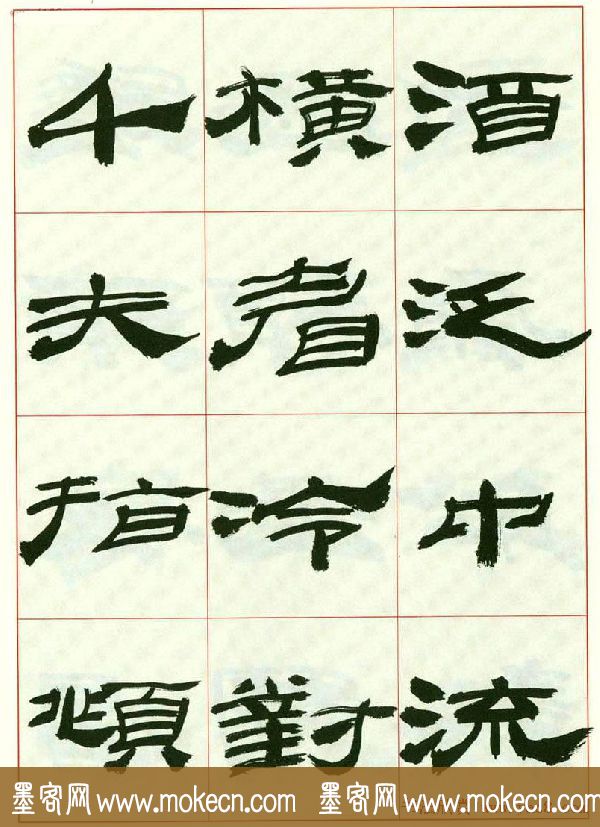 酒泛中流
橫眉冷對
千夫指頫
墨客网 www.mokecn.com 墨客网 www.mokecn.com